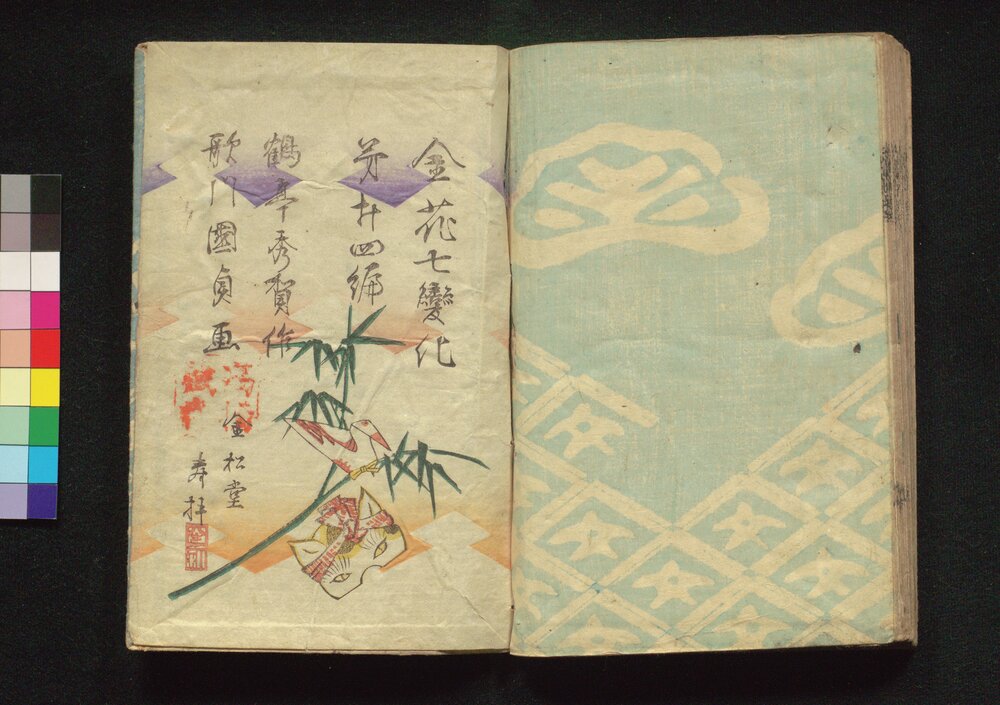 金花七變化
第廿四編
鶴亭秀賀作
歌川國貞画
金松堂
寿梓